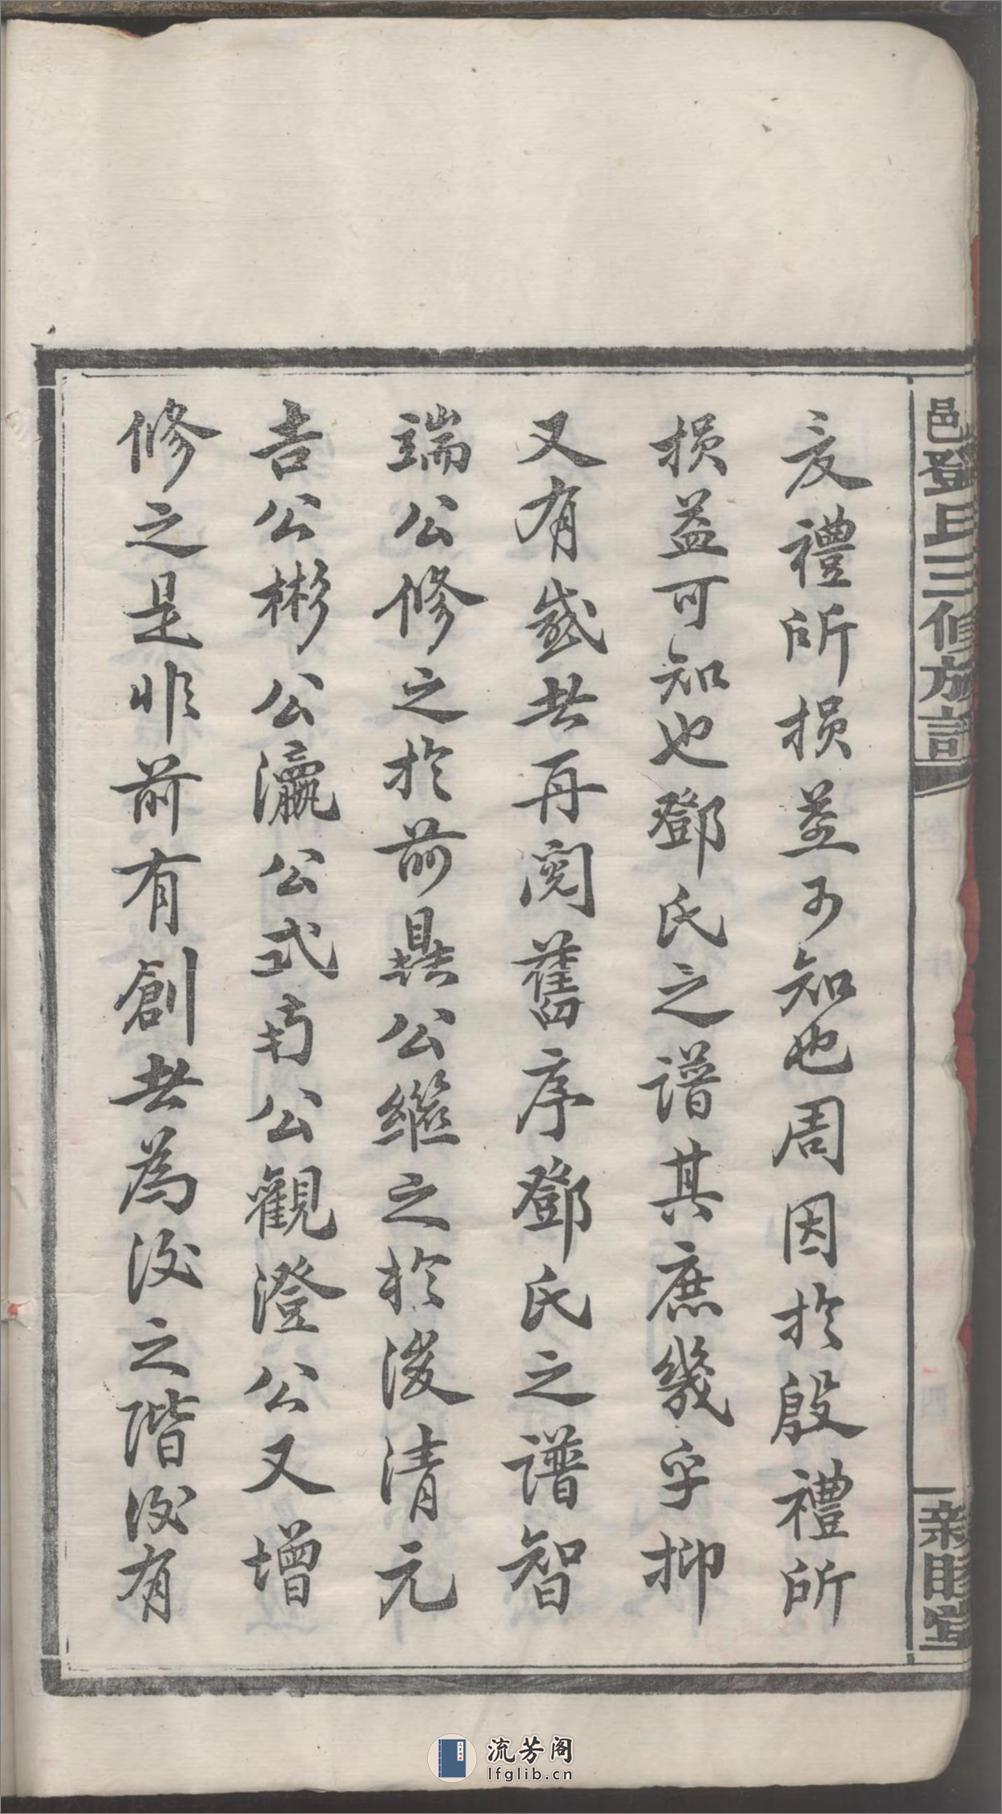 夏禮所損益可知也周因於殷禮所
損益可知也鄧氏之譜其庶幾乎抑
又有感者再閱舊序鄧氏之譜智
端公修之於前鼎公繼之於後清元
吉公彬公瀛公式南公觀澄公又增
修之是非前有創者為後之階後有
邑鄧氏三修族譜
親睦堂
流芳阁
lfglib.cn